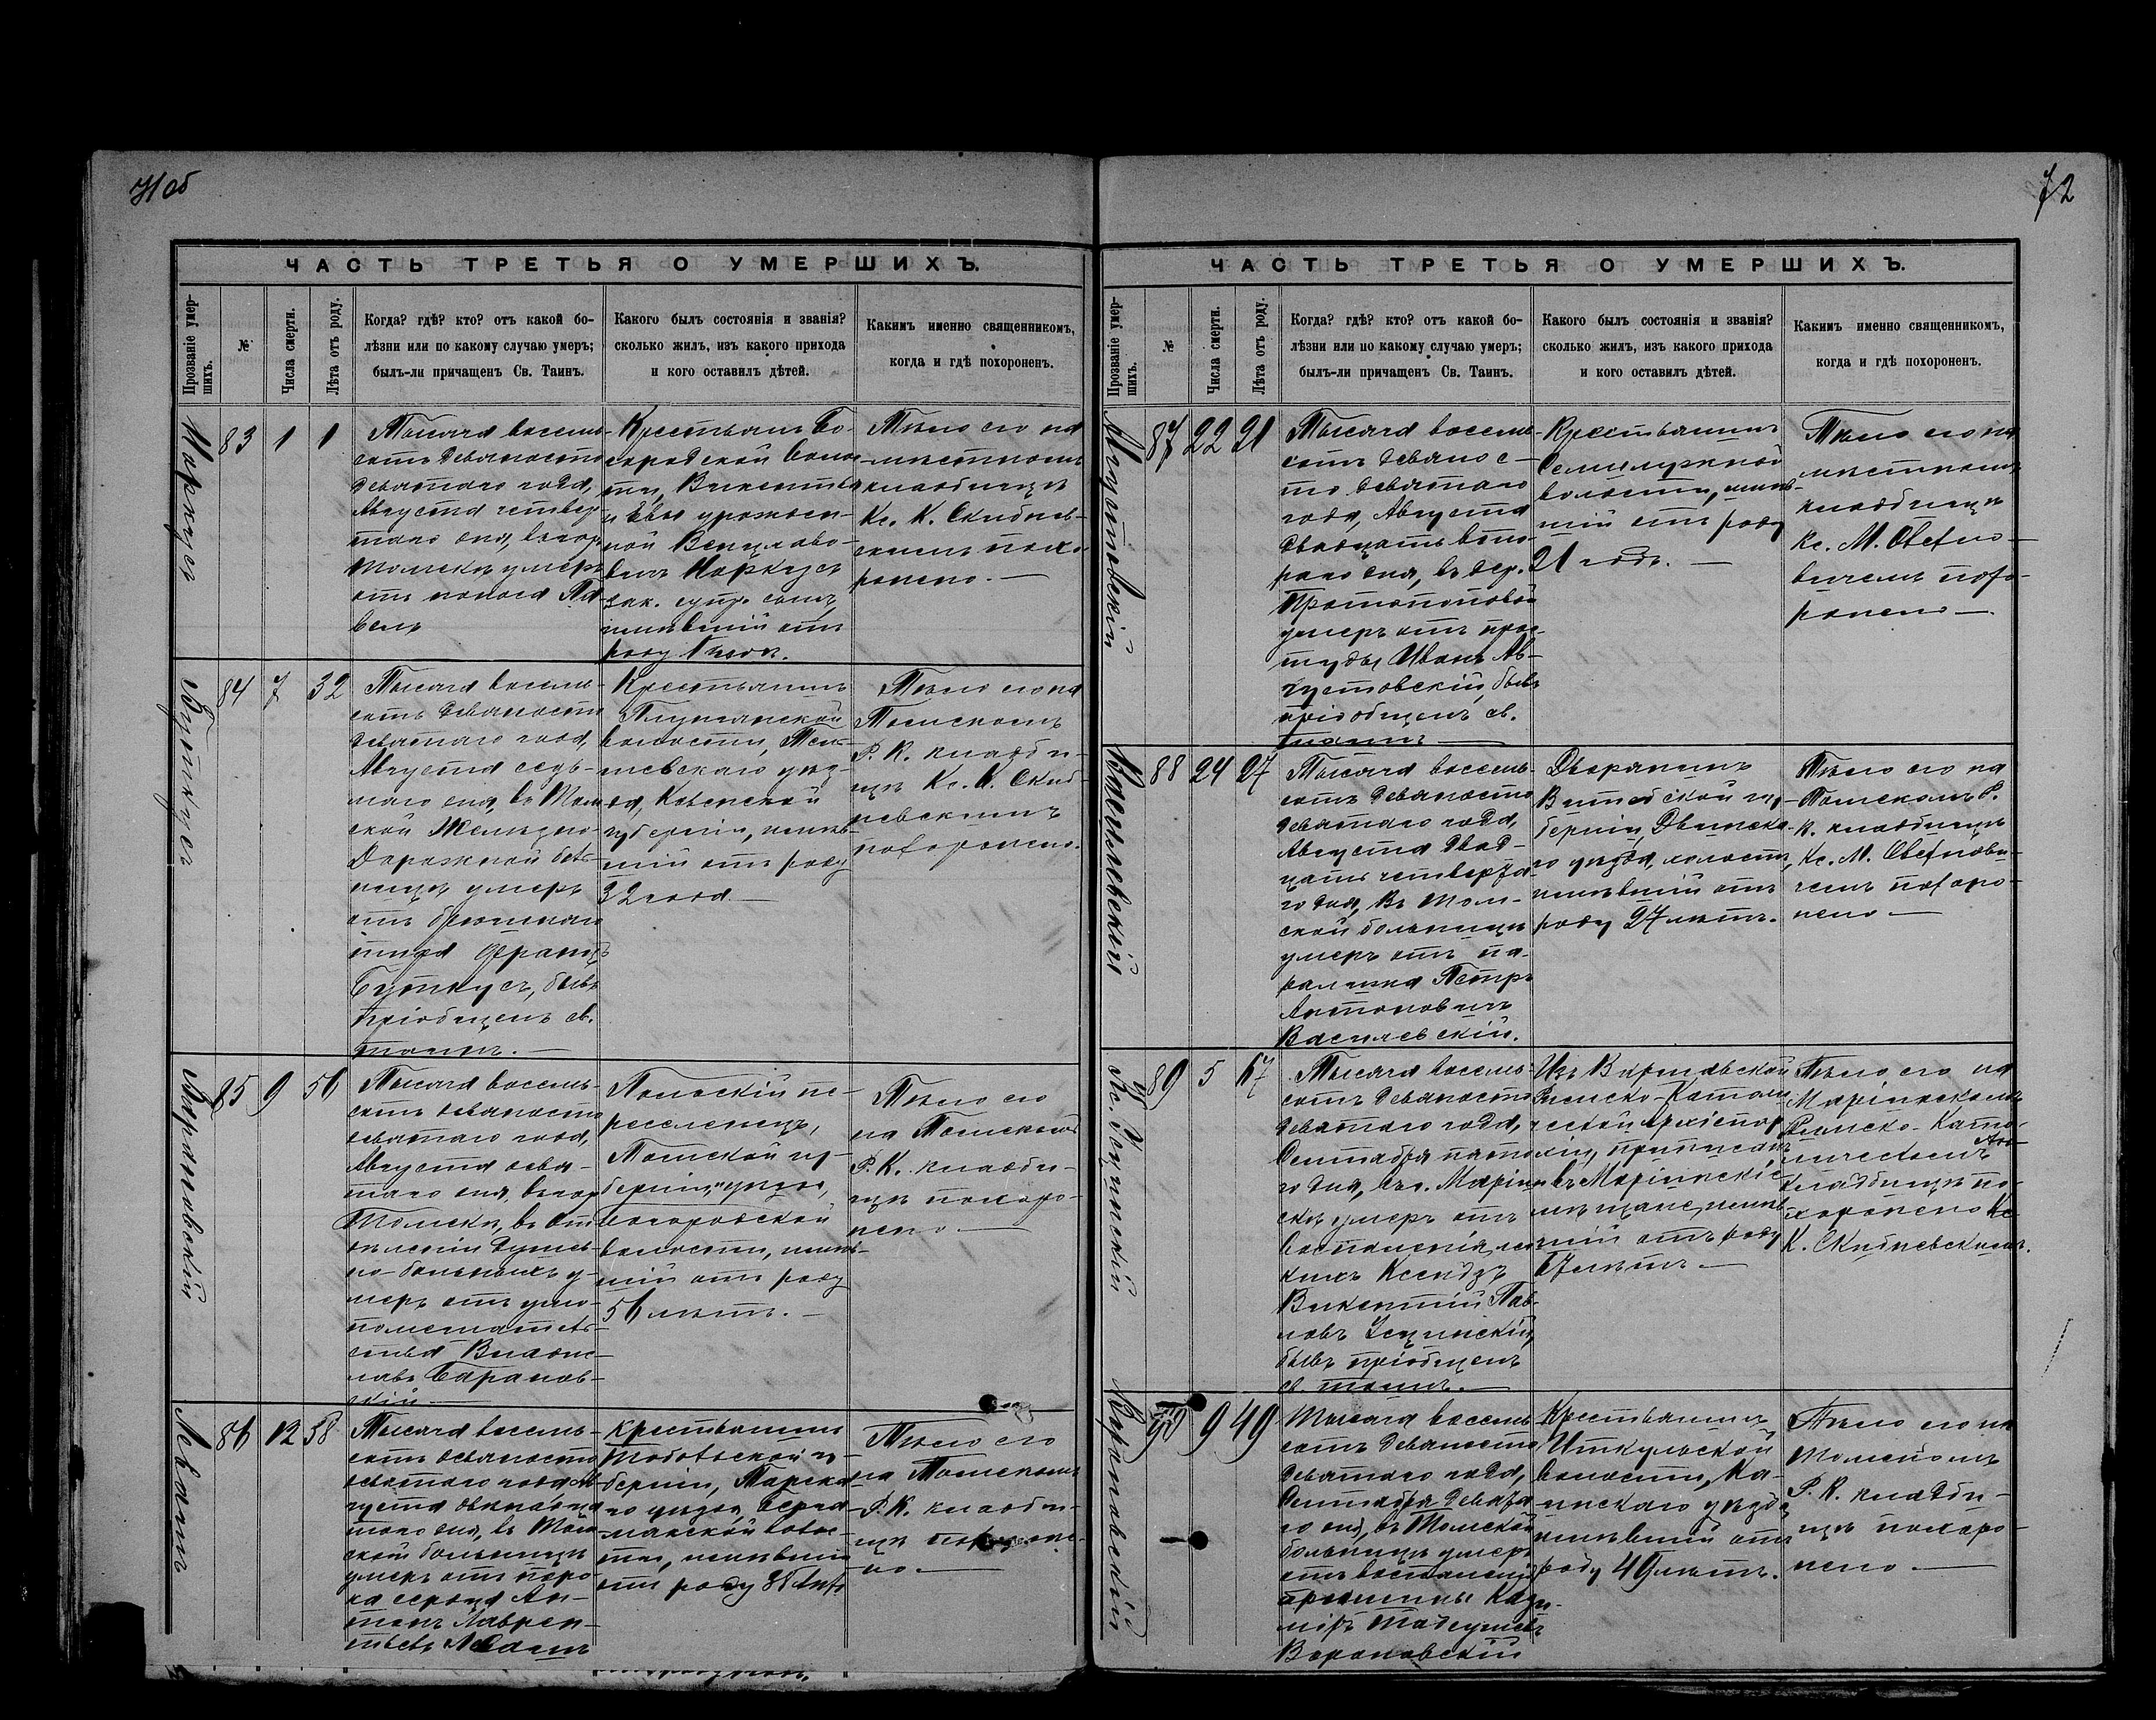 71 об
ЧАСТЬ ТРЕТЬЯ О УМЕРШИХЪ.
Прозваніе умер-
шихъ.
№
Числа смерти.
Лѣта отъ роду.
Когда? гдѣ? кто? отъ какой бо-
лѣзни или по какому случаю умеръ;
былъ-ли причащенъ Св. Таинъ.
Какого былъ состоянія и званія?
сколько жилъ, изъ какого прихода
и кого оставилъ дѣтей.
Какимъ именно священникомъ,
когда и гдѣ похороненъ.
Наркусъ
83
1
1
Тысяча восемь-
сотъ девяносто
девятаго года,
Августа
дня, въ гор.
Томскѣ умеръ
отъ поноса Па-
велъ
Крестьянъ Бо-
городской воло-
сти, Викентія
и Евы урожден-
ной
Наркусъ
зак. супр. сынъ,
имѣвшій отъ
роду 1 годъ.
Тѣло его на
мѣстномъ
кладбищѣ
Кс. К. Скибнев-
скимъ похо-
ронено. —
Буткусъ
84
7
32
Тысяча восемь-
сотъ девяносто
девятаго года,
Августа седь-
маго дня, въ Том-
ской Желѣзно-
Дорожной боль-
ницѣ умеръ
отъ брюшнаго
тифа Францъ
Буткусъ, былъ
пріобщенъ св.
таинъ. —
Крестьянинъ
волости, Тель-
шевскаго уѣз-
да, Ковенской
губерніи, имѣв-
шій отъ роду
32 года. —
Тѣло его на
Томскомъ
Р. К. кладби-
щѣ Кс. К. Скиб-
невскимъ
похоронено.
Барановскій
85
9
56
Тысяча восемь-
сотъ девяносто
девятаго года,
Августа девя-
таго дня, въ гор.
Томскѣ, въ от-
дѣленіи душев-
но-больныхъ у-
меръ отъ умо-
помѣшатель-
ства Владис-
лавъ Баранов-
скій —
Польскій пе-
реселенецъ,
Томской гу-
берніи, уѣзда,
Богородской
волости, имѣв-
шій отъ роду
56 лѣтъ. —
Тѣло его
на Томскомъ
Р. К. кладби-
щѣ похоро-
нено —
86
12
38
Тысяча восемь-
сотъ девяносто
девятаго года Ав-
густа двѣнадца-
таго дня, въ Том-
ской больницѣ
умеръ отъ поро-
ка сердца Ан-
тонъ Лаврен-
тьевъ
Крестьянинъ
Тобольской гу-
берніи, Тарска-
го уѣзда,
волос-
ти, имѣвшій
отъ роду 38 лѣтъ
Тѣло его
на Томскомъ
Р. К. кладби-
щѣ похороне-
но. —
72
ЧАСТЬ ТРЕТЬЯ О УМЕРШИХЪ.
Прозваніе умер-
шихъ.
№
Числа смерти.
Лѣта отъ роду.
Когда? гдѣ? кто? отъ какой бо-
лѣзни или по какому случаю умеръ;
былъ-ли причащенъ Св. Таинъ.
Какого былъ состоянія и званія?
сколько жилъ, изъ какого прихода
и кого оставилъ дѣтей.
Какимъ именно священникомъ,
когда и гдѣ похороненъ.
Августовскій
87
22
21
Тысяча восемь-
сотъ девянос-
то девятаго
года, Августа
двадцать вто-
раго дня, въ дер.
Протопоповой
умеръ отъ прос-
туды Иванъ Ав-
густовскій, былъ
пріобщенъ св.
таинъ —
Крестьянинъ
Семилужной
волости, имѣв-
шій отъ роду
21 годъ. —
Тѣло его на
мѣстномъ
кладбищѣ
Кс. М.
похо-
ронено —
Василевскій
88
24
27
Тысяча восемь-
сотъ девяносто
девятаго года,
Августа двад-
цать четверта-
го дня, въ Том-
ской больницѣ
умеръ отъ па-
ралича Петръ
Антоновичъ
Василевскій.
Дворянинъ
Витебской гу-
берніи, Двинска-
го уѣзда, холостъ,
имѣвшій отъ
роду 27 лѣтъ.
Тѣло его на
Томскомъ Р.
К. кладбищѣ
Кс. М.
похоро-
нено —
89
5
67
Тысяча восемь-
сотъ девяносто
девятаго года,
Сентября пята-
го дня, въ г. Маріин-
скѣ умеръ отъ
воспаленія лег-
кихъ Ксендзъ
Викентій Пав-
ловъ
былъ пріобщенъ
св. таинъ. —
Изъ Варшавской
Римско-Катали-
ческой Архіепар-
хіи, приписанъ
въ Маріинскіе
мѣщане, имѣв-
шій отъ роду
67 лѣтъ —
Тѣло его на
Маріинскомъ
Римско-Като-
лическомъ
кладбищѣ по-
хоронено Кс
К. Скибневскимъ.
Вороновскій
90
9
49
Тысяча восемь-
сотъ девяносто
девятаго года,
Сентября девята-
го дня, въ Томской
больницѣ умеръ
отъ воспаленія
брюшины Кази-
міръ
Вороновскій
Крестьянинъ
Иткульской
волости, Ка-
инскаго уѣзда,
имѣвшій отъ
роду 49 лѣтъ.
Тѣло его на
Томскомъ
Р. К. кладби-
щѣ похоро-
нено —